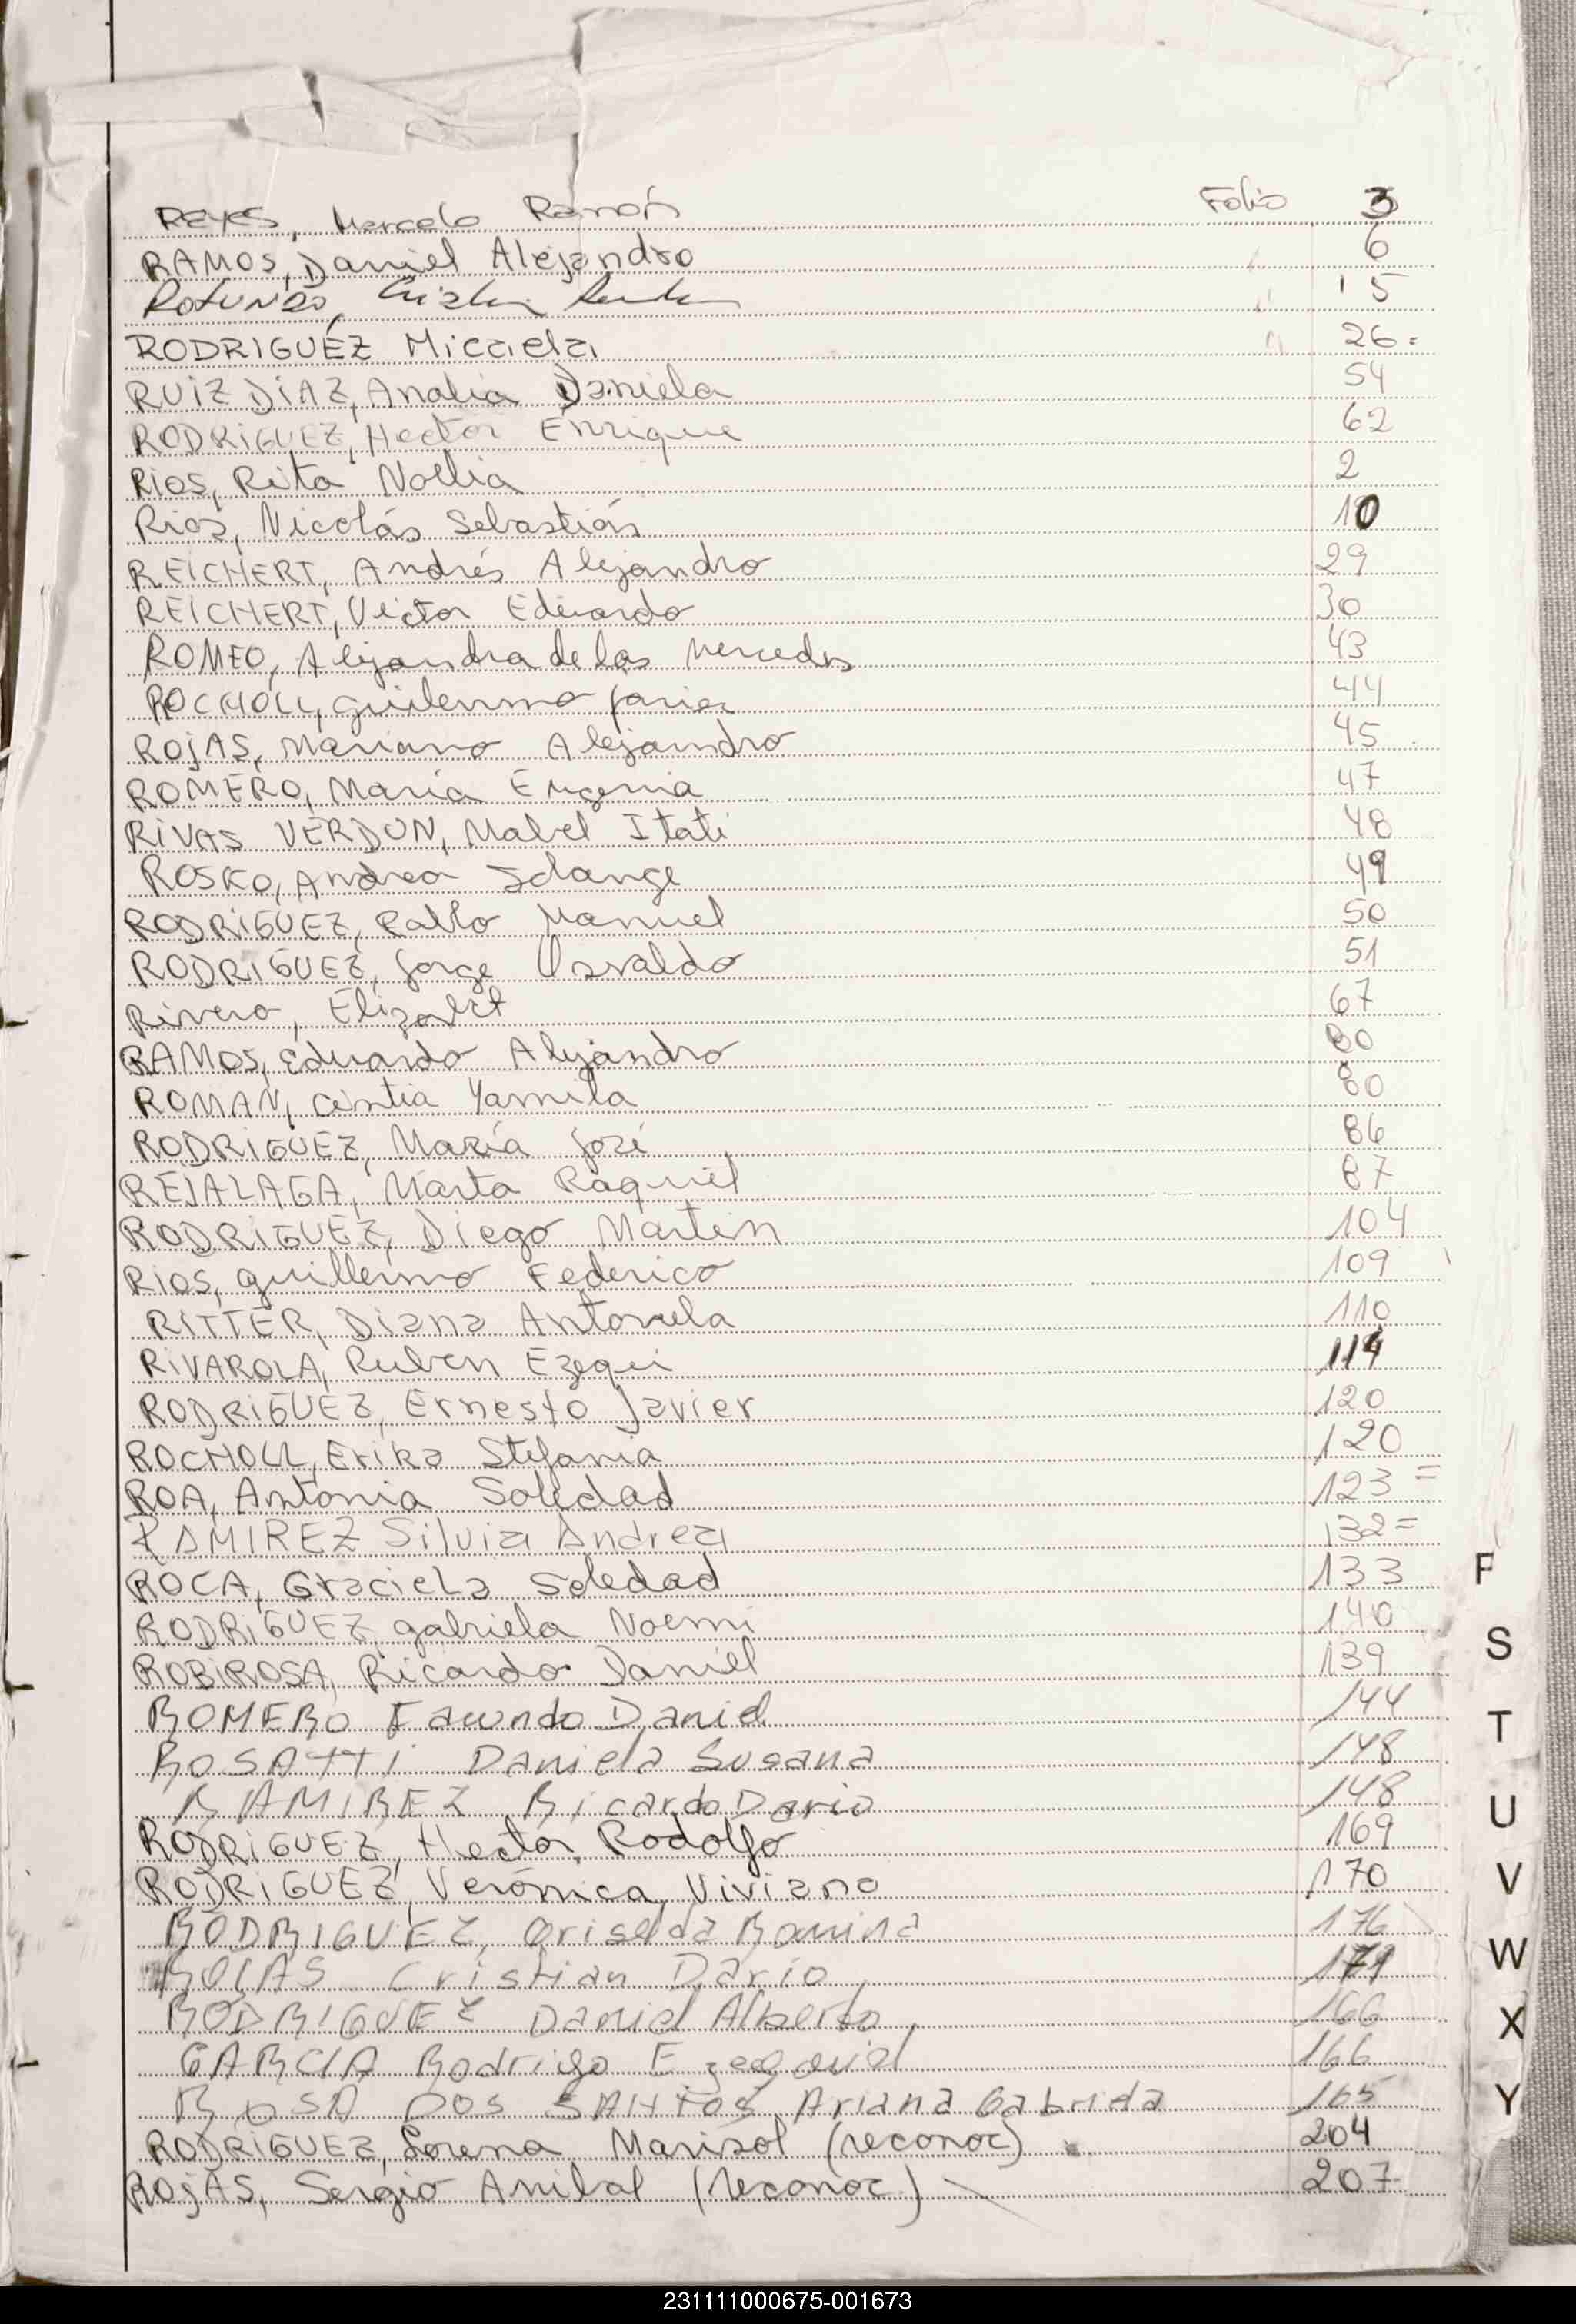 REYES, Marcelo Ramón Folio 3
RAMOS, Daniel Alejandro 6
ROTUNDO, 15
RODRIGUEZ Micaela 26=
RUIZ DIAZ, Analia Daniela 54
RODRIGUEZ, Hector Enrique 62
RIOS, Rita Noelia 2
Rios, Nicolás Sebastián 10
REICHERT, Andrés Alejandro 29
REICHERT, Victor Eduardo 30
ROMEO, Alejandra de las Mercedes 43
ROCHOLL, Guillermo Javier 44
ROJAS, Mariano Alejandro 45
ROMERO, Maria Eugenia 47
RIVAS VERDUN, Mabel Itati 48
ROSKO, Andrea Solange 49
RODRIGUEZ, Pablo Manuel 50
RODRIGUEZ, Jorge Osvaldo 51
Rivero, Elizabet 67
RAMOS, Eduardo Alejandro 80
ROMAN, Cintia Yamila 80
RODRIGUEZ, María José 86
REJALAGA, Marta Raquel 87
RODRIGUEZ, Diego Martin 104
RIOS, guillermo Federico 109
RITTER, Diana Antonela 110
RIVAROLA, Ruben Ezequi 114
RODRIGUEZ, Ernesto Javier 120
ROCHOLL, Erika Stefania 120
ROA, Antonia Soledad 123=
RAMIREZ Silvia Andrea 132=
ROCA, Graciela Soledad 133
RODRIGUEZ, gabriela Noemi 140
ROBIROSA, Ricardo Daniel 139
ROMERO Facundo Daniel 144
ROSATTI Daniela Susana 148
RAMIREZ Ricardo Dario 148
RODRIGUEZ, Hector Rodolfo 169
RODRIGUEZ, Verónica, Viviana 170
RODRIGUEZ, Griselda Romina 176
ROJAS Cristian Dario 171
RODRIGUEZ Daniel Alberto 166
GARCIA Rodrigo Ezequiel 166
ROSA DOS SANTOS, Ariana Gabriela 165
RODRIGUEZ, Lorena Marisol (reconoc) 204
ROJAS, Sergio Anibal (reconoc) 207
F
S
T
U
V
W
X
Y
231111000675-001673